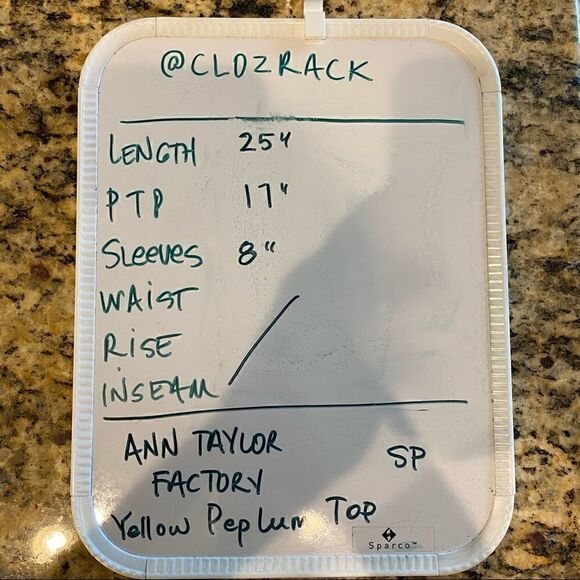 @CLOZRACK
LENGTH 25"
PTP 17"
SLeeveS 8"
WAIST
RISE
INSEAM
ANN TAYLOR SP
FACTORY
Yellow Peplum Top
Sparco™